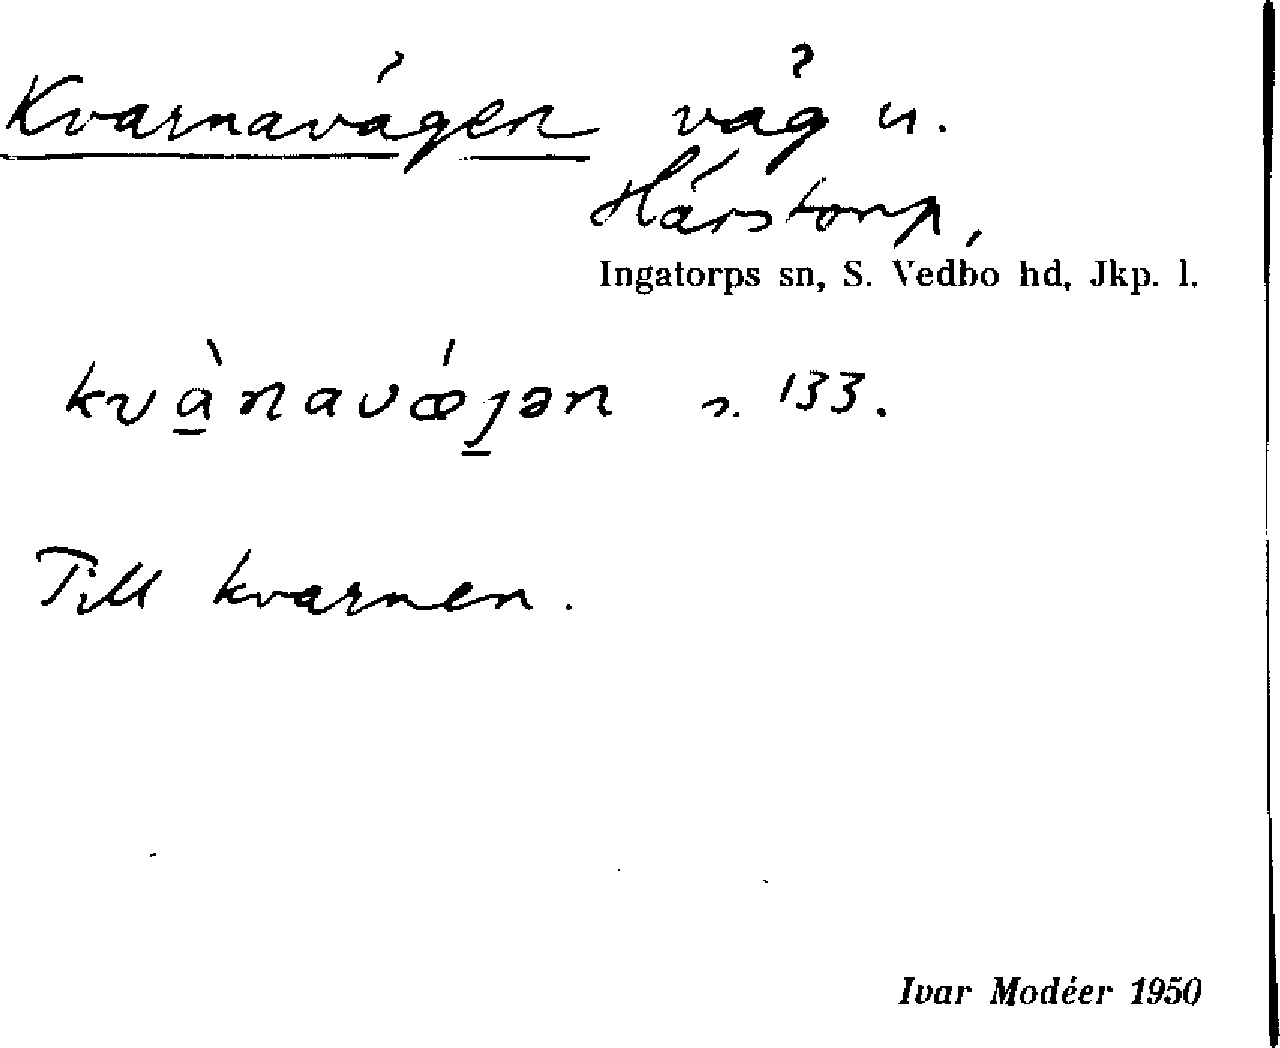 Kvarnavägen väg u.
Härstorp,
Ingatorps sn, S. Vedbo hd, Jkp. l.
kvànavǽjən s. 133.
Till kvarnen.
Ivar Modéer 1950